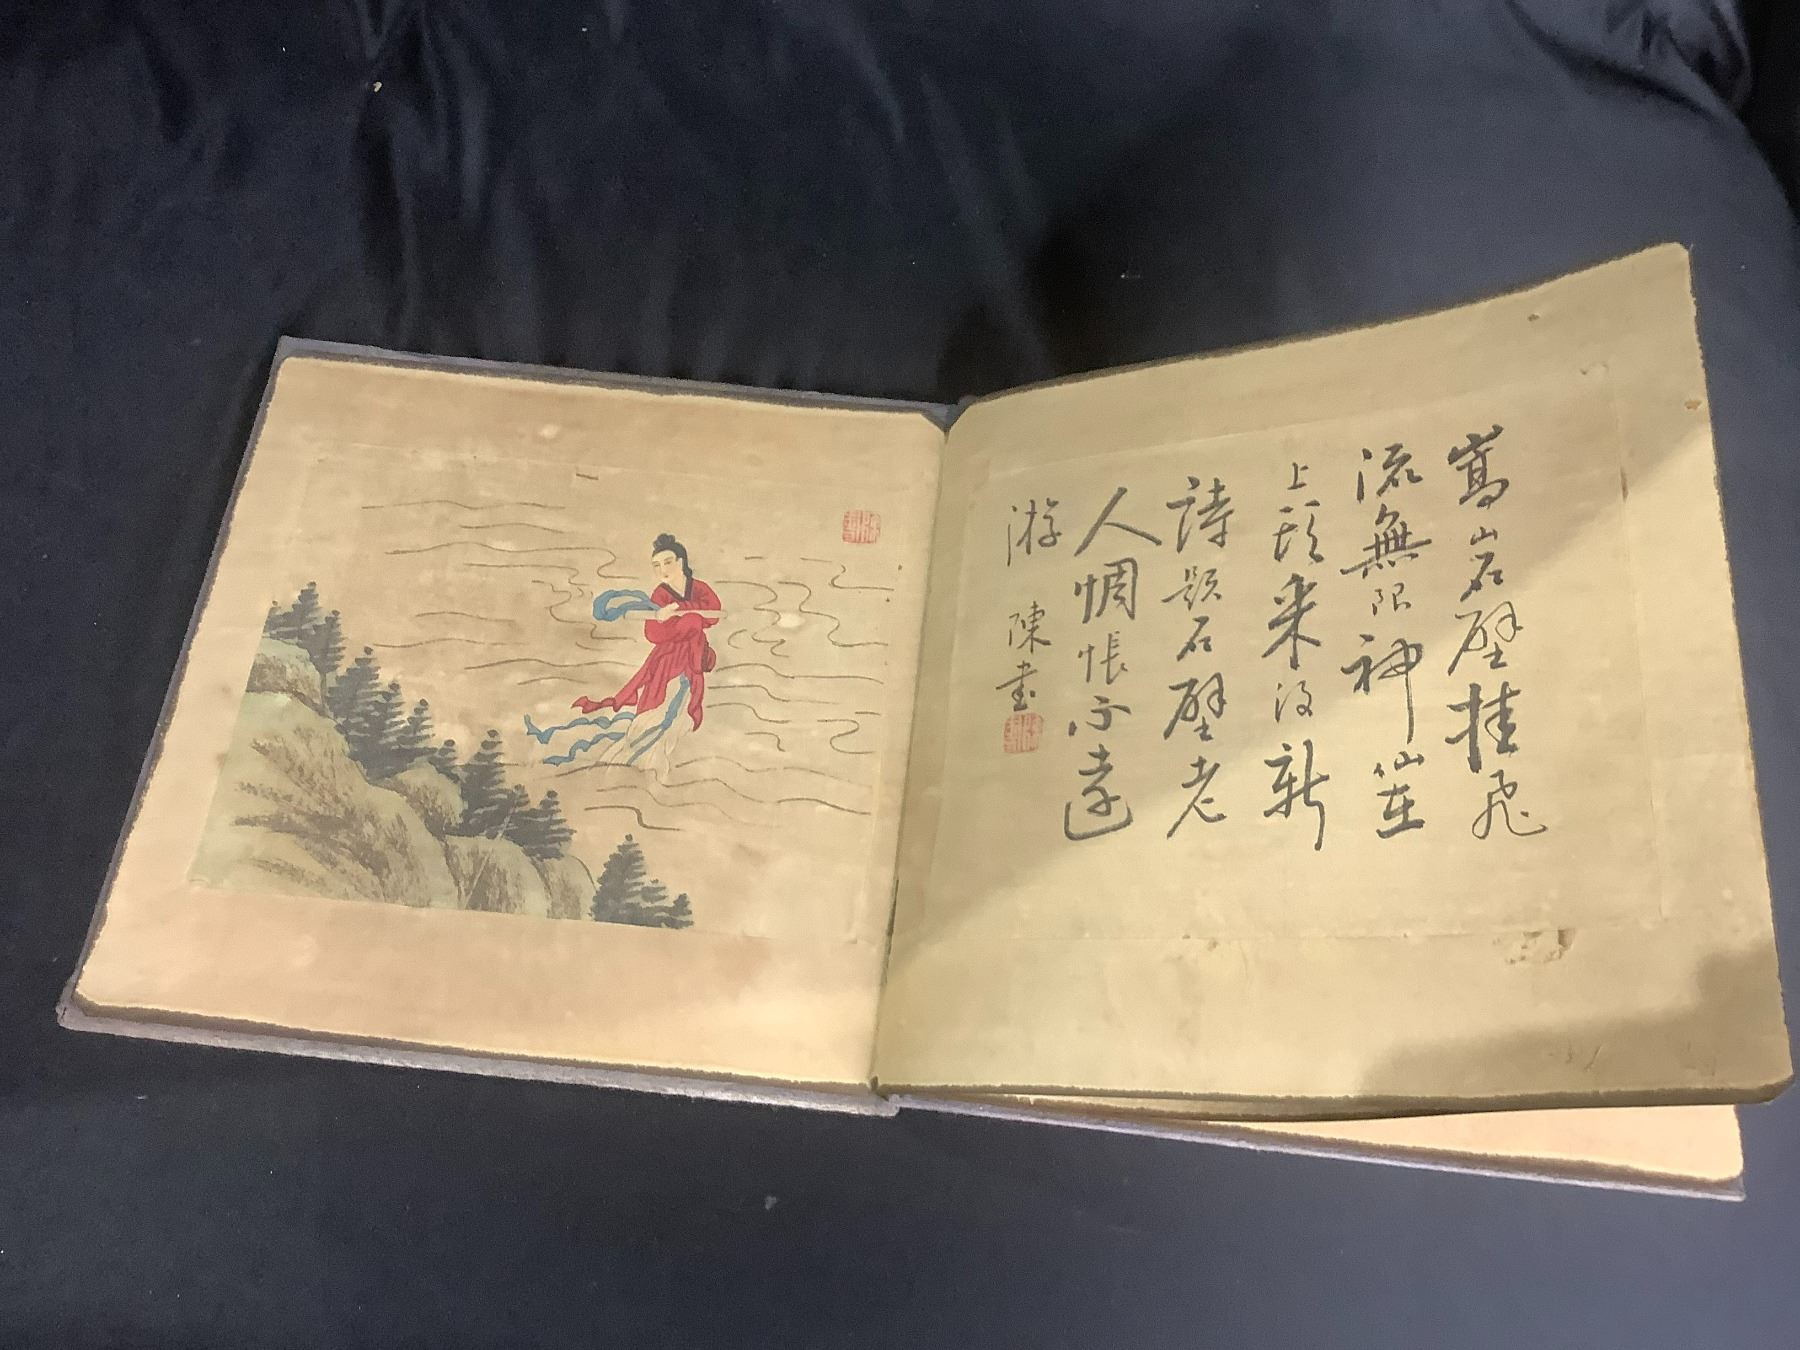 嵩山石壁挂飛
流無限神仙在
上頭采得新
詩題石壁老
人惆悵不遠
游 陳書